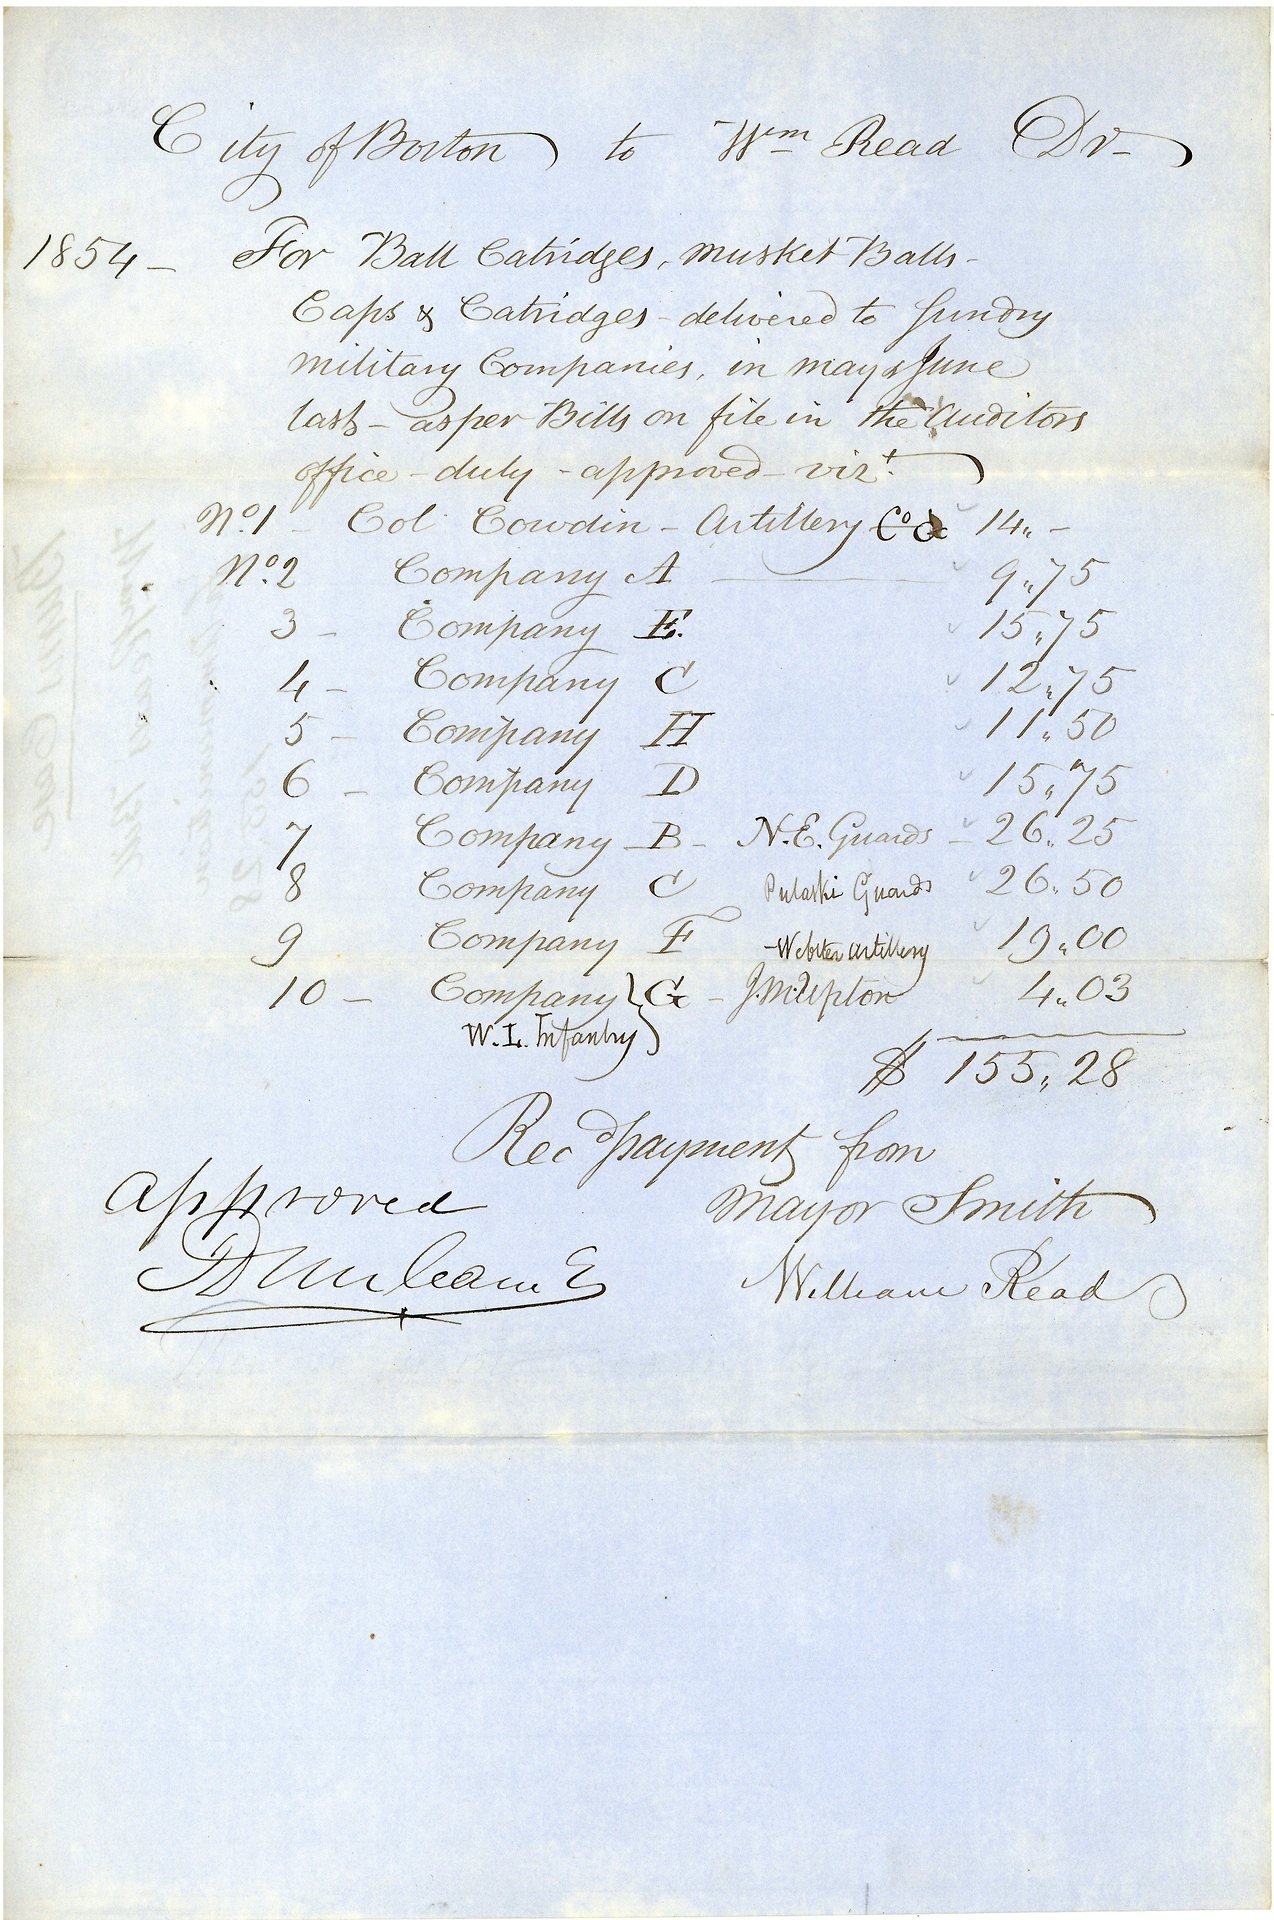 City of Boston to Wm Read Dr
1854 - For Ball Catridges, musket Balls -
Caps & Catridges - delivered to Sundry
military Companies, in may & June
last - as per Bills on file in the Auditors
office - duly - approved - vizt
No. 1 - Col Cowdin - Artillery Co 14„ -
No. 2 Company A 9„75
3 - Company E. 15„75
4 - Company C 12„75
5 - Company H 11„50
6 - Company D 15„75
7 Company - B - N.E. Guards - 26„25
8 Company C Pulaski Guards 26„50
9 Company F - Webster Artillery 19„00
10 - Company } G - J.M. Upton 4„03
W. L. Infantry }
$ 155„28
Recd payment from
Approved Mayor Smith
William Read